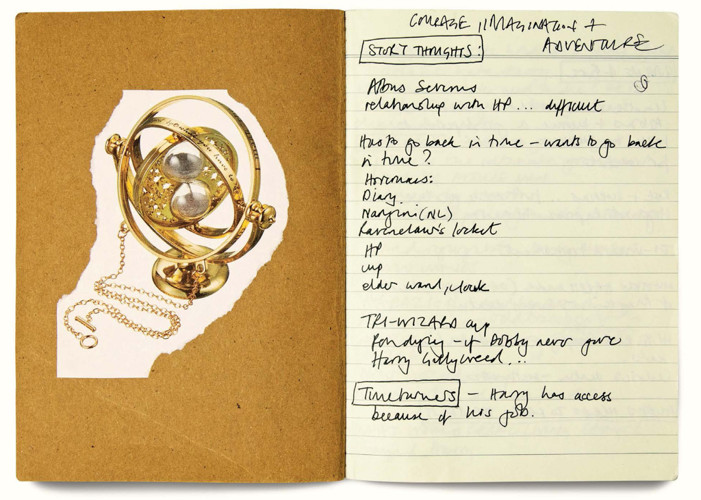 COURAGE, IMAGINATION +
ADVENTURE
STORY THOUGHTS:
Albus Severus
relationship with HP ... difficult
Has to go back in time – wants to go back
in time?
Horcruxes:
Diary.
Nargini (NL)
Ravenclaw's locket
HP
cup
elder wand, cloak
TRI-WIZARD cup
Ron dying – if Dobby never gave
Harry Gillyweed...
Timeturners – Harry has access
because of his job.